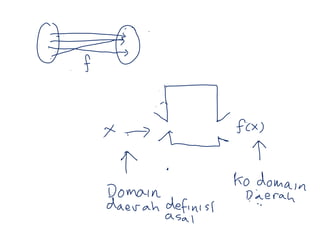 f
x → f(x)
Domain
daerah definisi
asal
Ko domain
Daerah